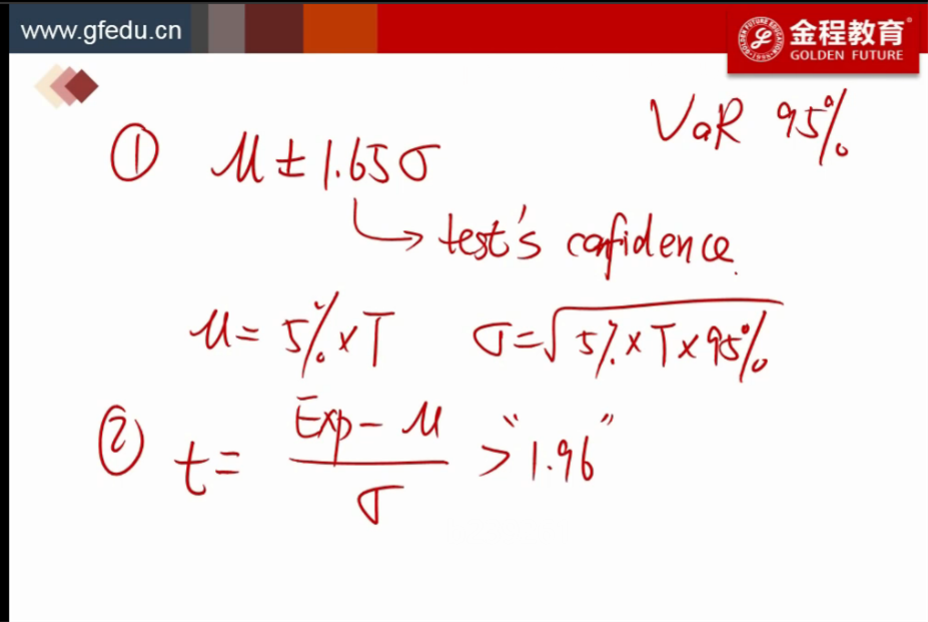 www.gfedu.cn
金程教育®
GOLDEN FUTURE
VaR 95%
① μ ± 1.65σ
→ test's confidence.
μ = 5% × T σ = √5% × T × 95%
② t = Exp - μ / σ > "1.96"